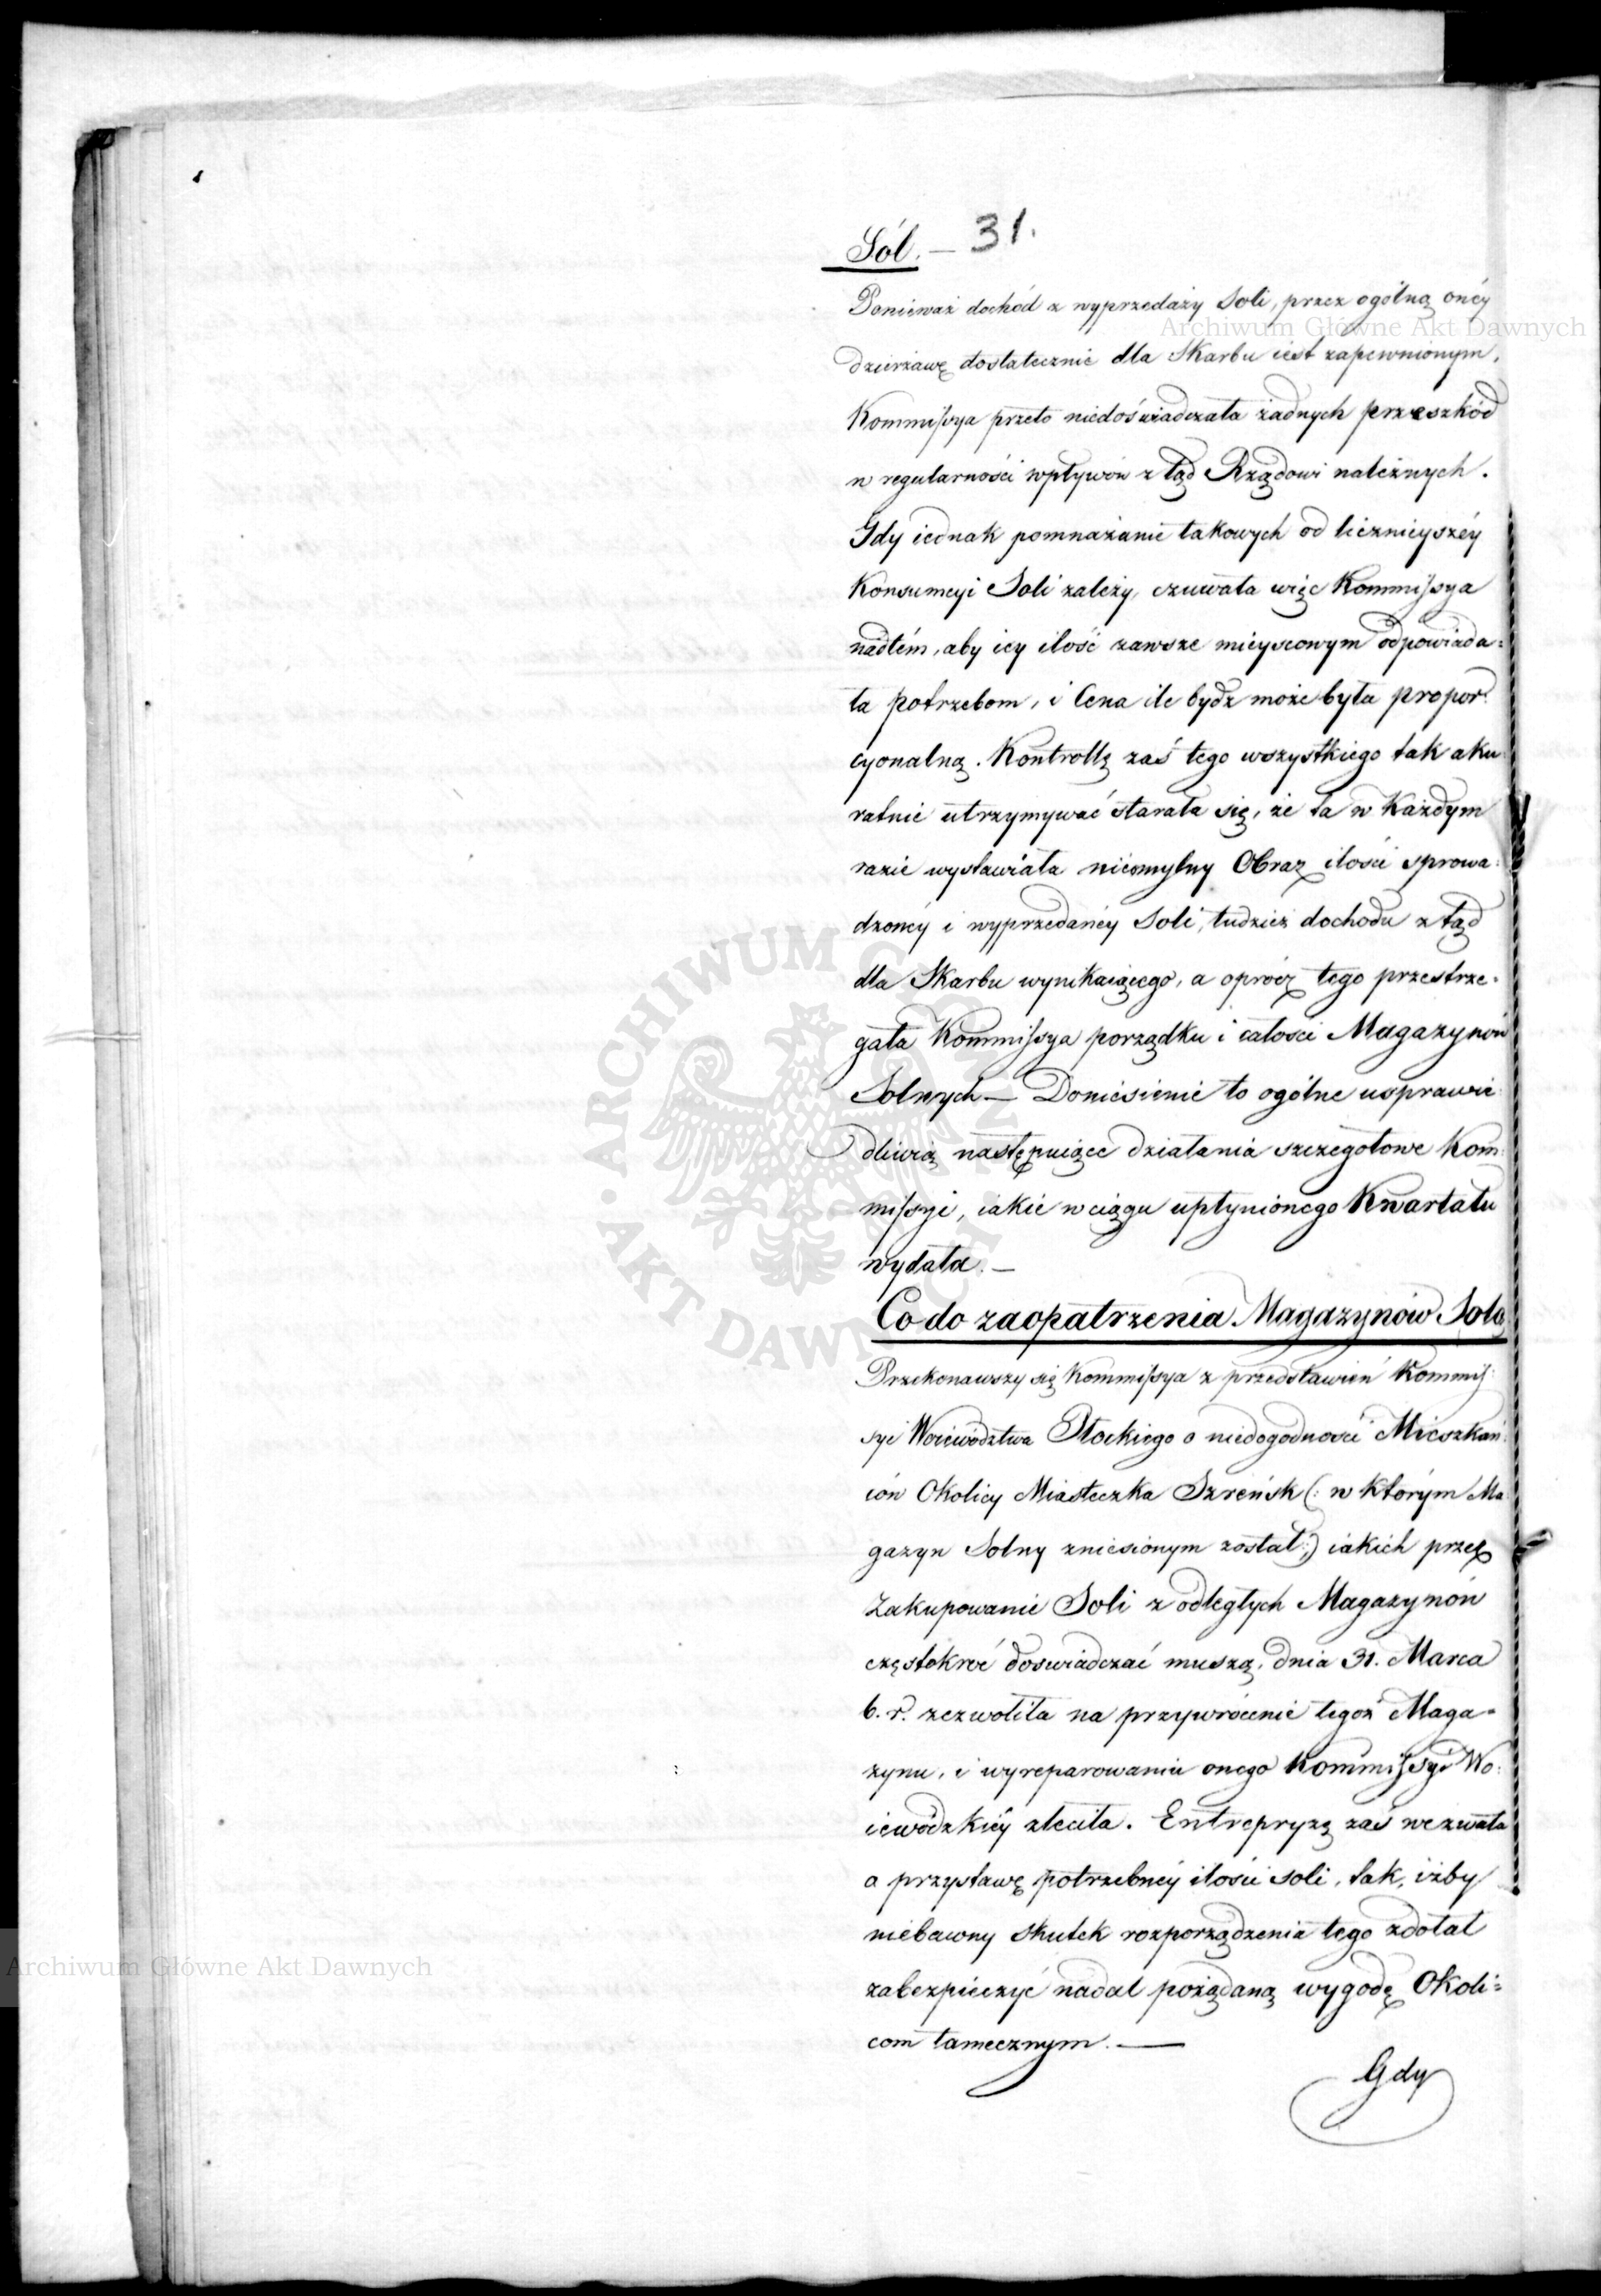 Sól. — 31.
Ponieważ dochód z wyprzedaży Soli, przez ogólną onéy
dzierżawę dostatecznie dla Skarbu iest zapewnionym,
Kommissya przeto niedoświadczała żadnych przeszkód
w regularności wpływów z tąd Rządowi należnych.
Gdy iednak pomnażanie takowych od licznieyszéy
Konsumcyi Soli zależy, czuwała więc Kommissya
nadtém, aby iey ilość zawsze mieyscowym odpowiada=
ła potrzebom, i Cena ile bydź może była propor=
cyonalną. Kontrollą zaś tego wszystkiego tak aku=
ratnie utrzymywać starała się, że ta w Każdym
razie wystawiała nieomylny Obraz ilości sprowa=
dzonéy i wyprzedanéy Soli, tudzież dochodu z tąd
dla Skarbu wynikaiącego, a oprócz tego przestrze=
gała Kommissya porządku i całości Magazynów
Solnych — Doniesienie to ogólne usprawie=
dliwią następuiące działania szczegółowe Kom=
missyi, iakie w ciągu upłynionego Kwartału
wydała. —
Co do zaopatrzenia Magazynów Solą
Przekonawszy się Kommissya z przedstawień Kommis=
syi Woiewództwa Płockiego o niedogodności Mieszkań=
ców Okolicy Miasteczka Szreńsk (: w którym Ma=
gazyn Solny zniesionym został :) iakich przez
Zakupowanie Soli z odległych Magazynów
częstokroć doświadczać muszą, dnia 31. Marca
b. r. zezwoliła na przywrócenie tegoż Maga=
zynu, i wyreparowanie onego Kommissyi Wo=
iewódzkiéy zleciła. Entrepryzą zaś wezwała
o przystawę potrzebnéy ilości soli, tak, iżby
niebawny skutek rozporządzenia tego zdołał
zabezpieczyć nadal pożądaną wygodę Okoli=
com tamecznym. —
Gdy
Archiwum Główne Akt Dawnych
Archiwum Główne Akt Dawnych
ARCHIWUM GŁÓWNE · AKT DAWNYCH ·